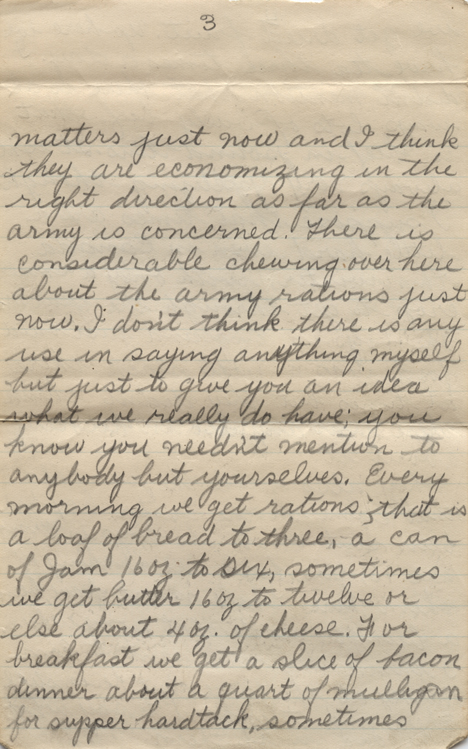 3
matters just now and I think
they are economizing in the
right direction as far as the
army is concerned. There is
considerable chewing over here
about the army rations just
now. I don't think there is any
use in saying anything myself
but just to give you an idea
what we really do have; you
know you needn't mention to
anybody but yourselves. Every
morning we get rations; that is
a loaf of bread to three, a can
of Jam 16oz. to six, sometimes
we get butter 16oz to twelve or
else about 4oz. of cheese. For
breakfast we get a slice of bacon
dinner about a quart of mulligan
for supper hardtack, sometimes